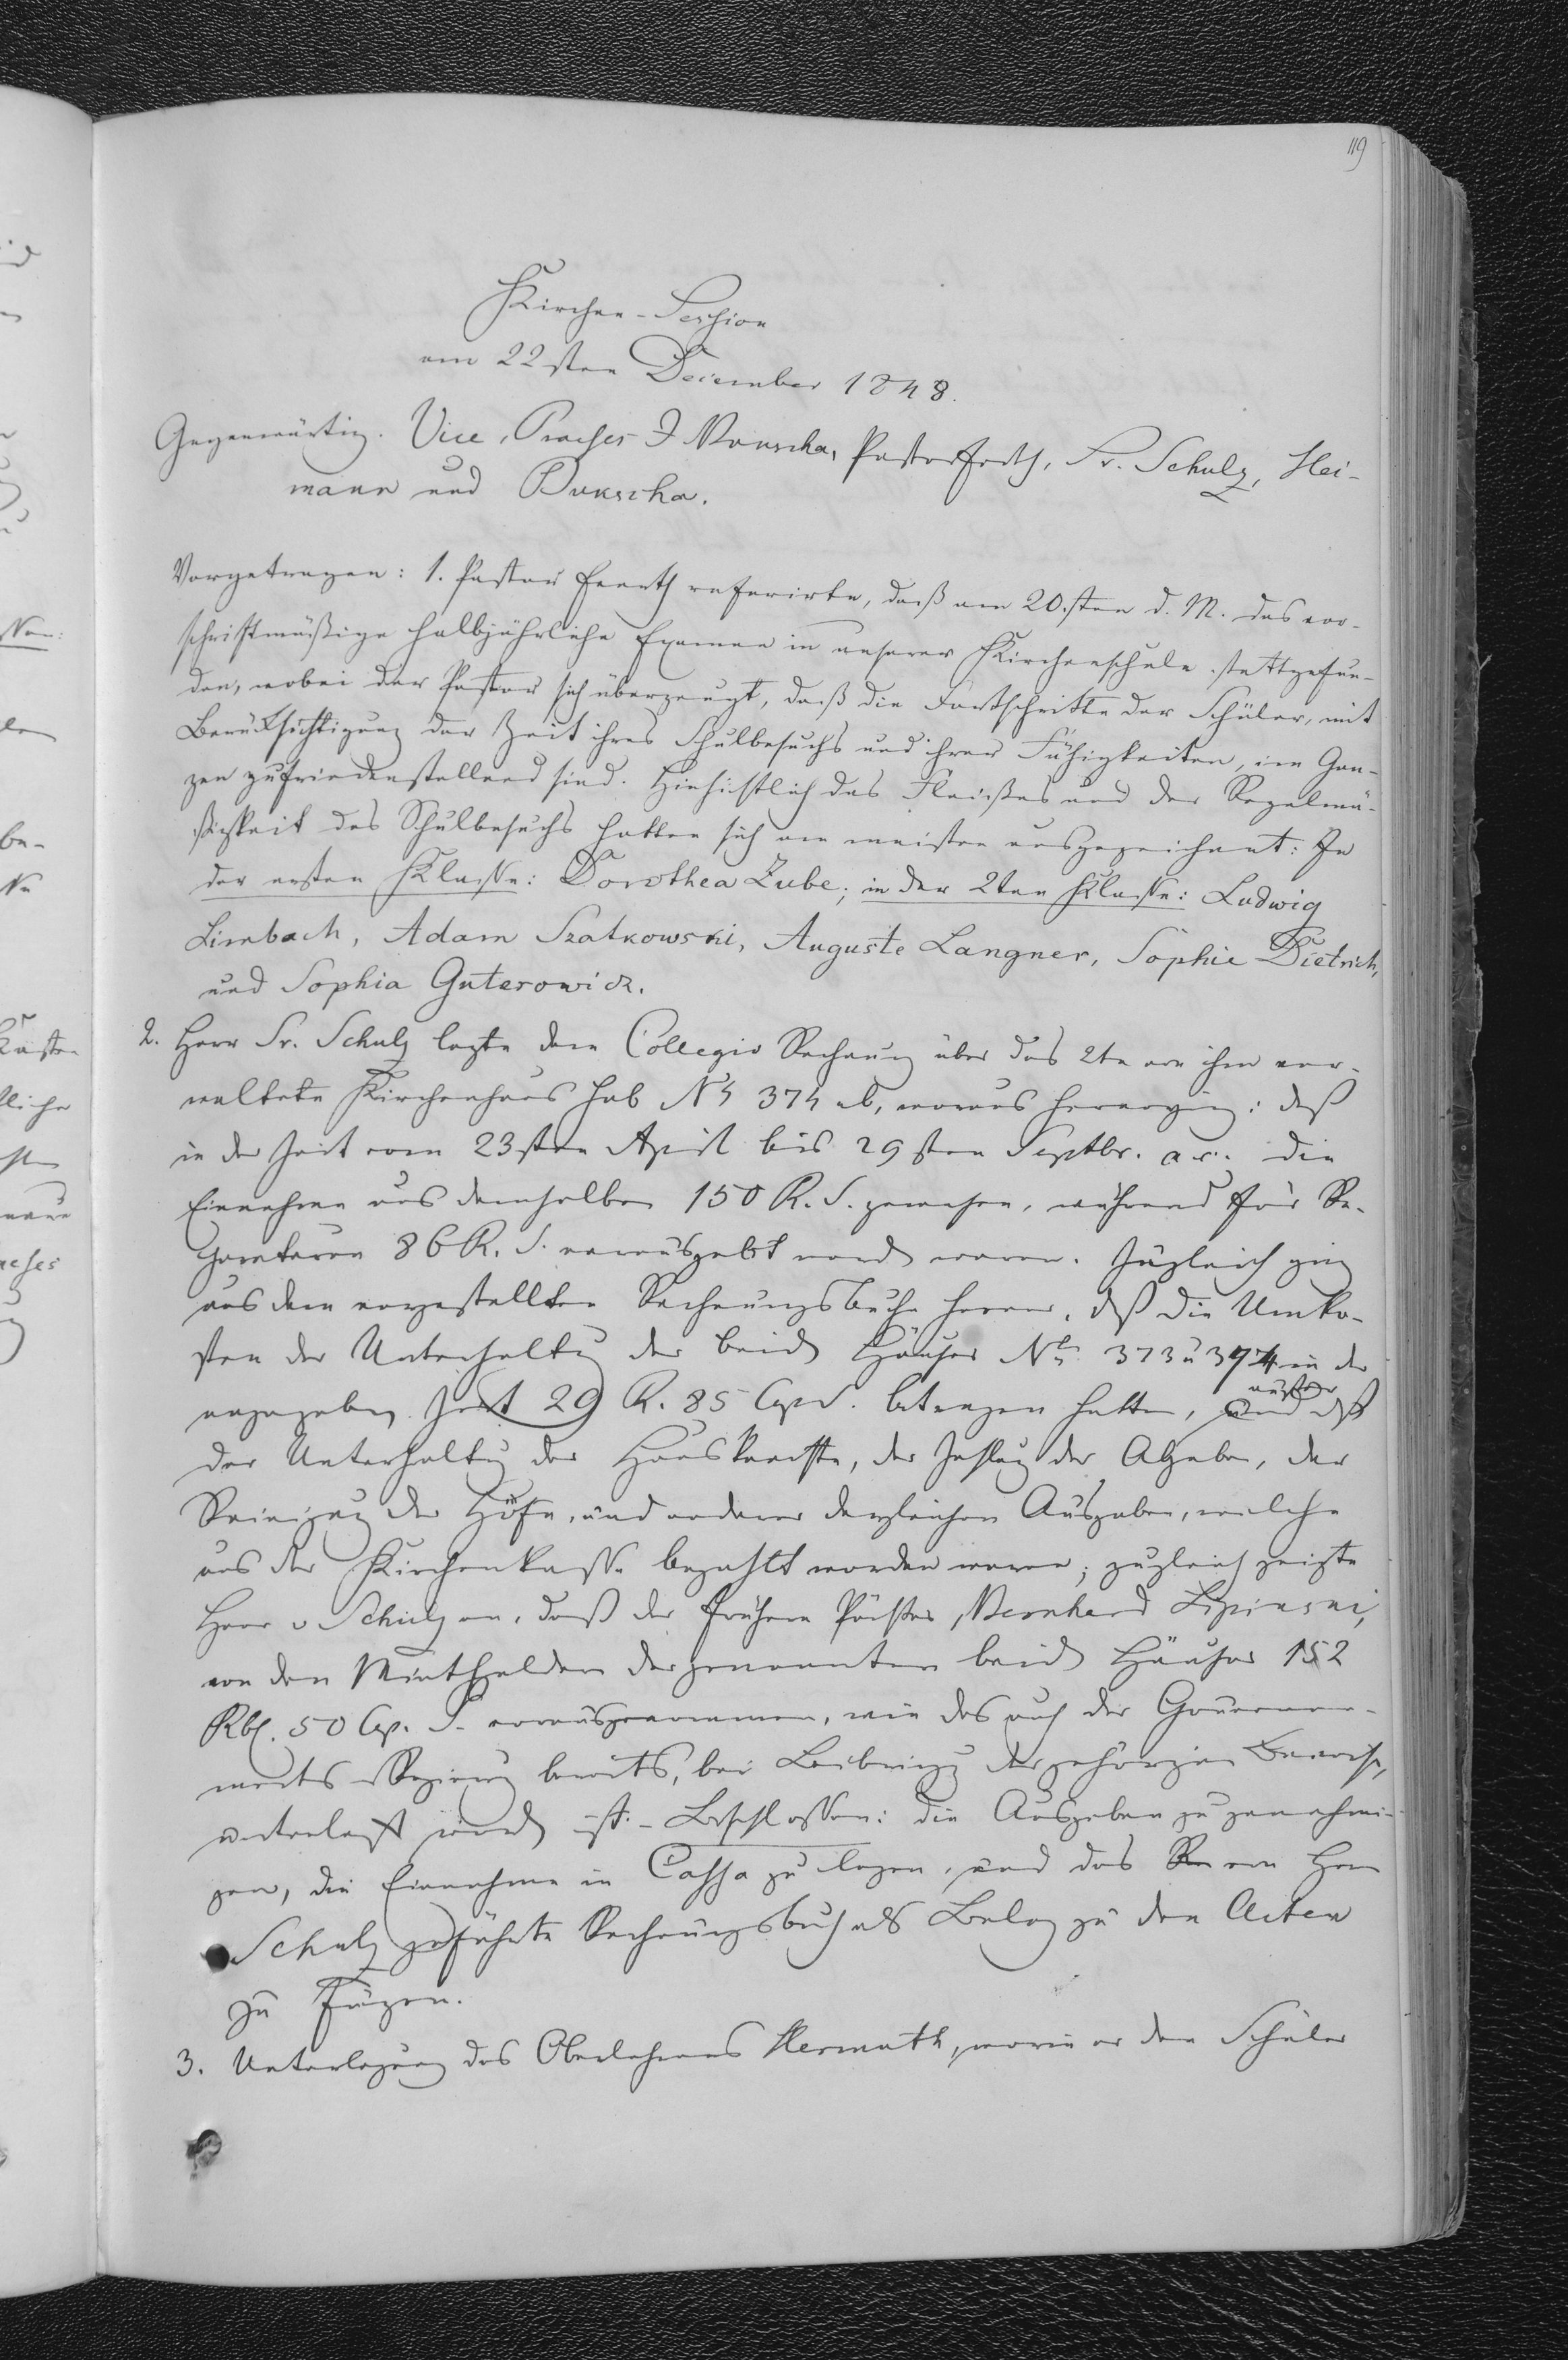 119
Kirchen-Session
am 22sten December 1848.
Gegenwärtig. Vice, Praeses J Mourscha, Pastor Fereth, Dr. Schulz, Hei-
mann und Burscha.
Vorgetragen: 1. Pastor Fereth referirte, daß am 20.sten d. M. das vor-
schriftmäßige halbjährliche Examen in unserer Kirchenschule stattgefun-
den, wobei der Pastor sich überzeugt, daß die Fortschritte der Schüler, mit
Berücksichtigung der Zeit ihres Schulbesuchs und ihrer Fähigkeiten, im Gan-
zen zufriedenstellend sind. Hinsichtlich des Fleißes und der Regelmä-
ßigkeit des Schulbesuchs hatten sich am meisten ausgezeichnet: In
der ersten Klasse: Dorothea Zube; in der 2ten Klasse: Ludwig
Limbach, Adam Szatkowski, Auguste Langner, Sophie Dietrich,
und Sophia Guterowicz.
2. Herr Dr. Schulz legte dem Collegio Rechnung über das 2te von ihm ver-
waltete Kirchenhaus sub No 374 ab, woraus hervorging: daß
in der Zeit vom 23sten April bis 29sten Septbr. a. c. die
Einnahme aus demselben 150 R. S. gewesen, während für Re-
paraturen 86 R. S. verausgabt worden waren. Zugleich ging
aus dem vorgestellten Rechnungsbuche hervor, daß die Unko-
sten der Unterhaltung der beiden Häuser No 373 u 374 in der
angegeben Zeit 29 R. 85 Cop. S. betragen hatten, außer
der Unterhaltung der Hausknechte, der Zahlung der Abgaben, der
Reinigung der Höfe, und anderer dergleichen Ausgaben, welche
aus der Kirchenkasse bezahlt worden waren; zugleich zeigte
Herr Schulz an, daß der frühere Pächter, Bernhard Lipinski,
von den Miethgeldern der genannten beiden Häuser 152
Rbl. 50 Cop. S. vorausgenommen, wie das auch der Gouverne-
ments-Regierung bereits, bei Beibringung der gehörigen Beweise,
unterlegt worden ist. – Beschlossen: die Ausgaben zu genehmi-
gen, die Einnahme in Cassa zu legen, und das von Herrn
Schulz geführte Rechnungsbuch als Beleg zu den Acten
zu fügen.
3. Unterlegung des Oberlehrers Hermuth, worin er den Schüler